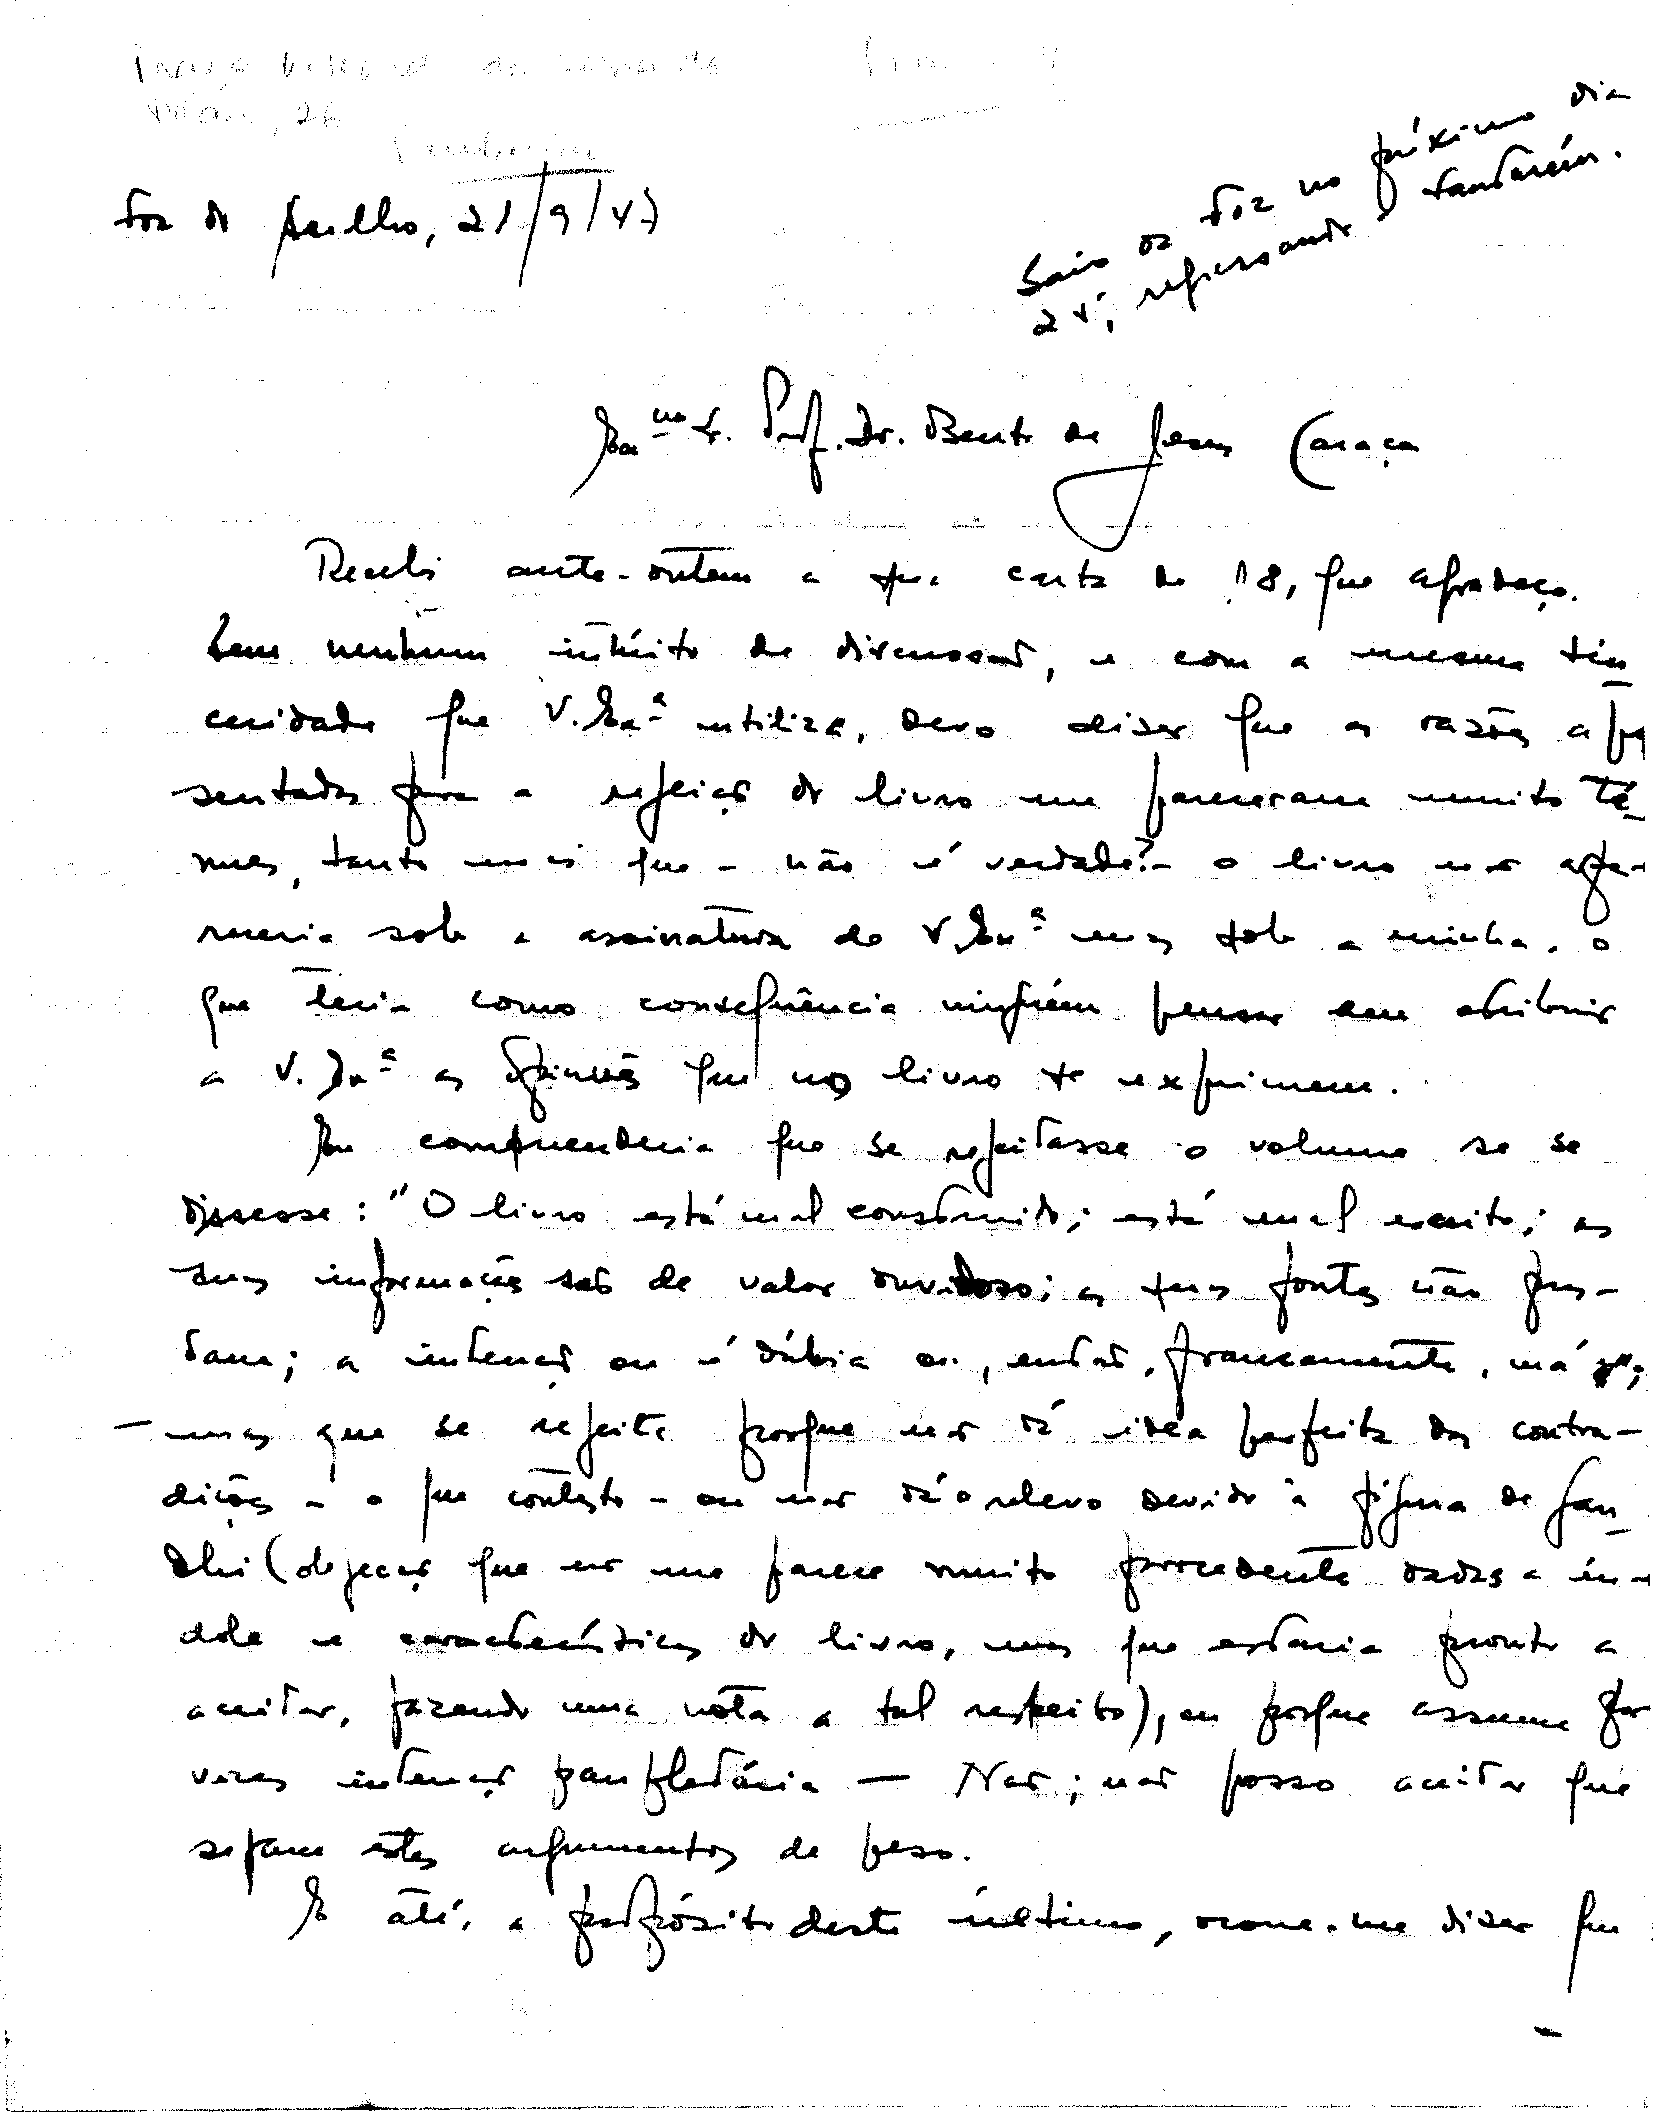 Foz do Arelho, 21/9/47
Saio da Foz no próximo dia
24, regressando a Santarém.
Exmo Sr. Prof. Dr. Bento de Jesus Caraça
Recebi ante-ontem a sua carta de 18, que agradeço.
Sem nenhum intúito de discussão, e com a mesma sin
ceridade que V. Exª utiliza, devo dizer que as razões apre
sentadas para a rejeição do livro me pareceram muito té-
nues, tanto mais que - não é verdade? - o livro não apa-
receria sob a assinatura de V. Exª mas sob a minha. o
que teria como consequência ninguém pensar em atribuir
a V. Exª as opiniões que no livro se exprimem.
Eu compreenderia que se rejeitasse o volume se se
dissesse: "O livro está mal construido; está mal escrito; as
suas informações são de valor duvidoso; as suas fontes não pres-
tam; a intenção ou é dúbia ou, então, francamente, má";
— mas que se rejeite porque não dá idea perfeita das contra-
dições - o que contesto - ou não dá o relevo devido à figura de Gan-
dhi (objecção que não me parece muito procedente dadas a ín-
dole e características do livro, mas que estaria pronto a
aceitar, fazendo uma nota a tal respeito), ou porque assume por
vezes intenção panfletária — Não; não posso aceitar que
sejam estes argumentos de peso.
E até, a propósito deste último, ocorre-me dizer que